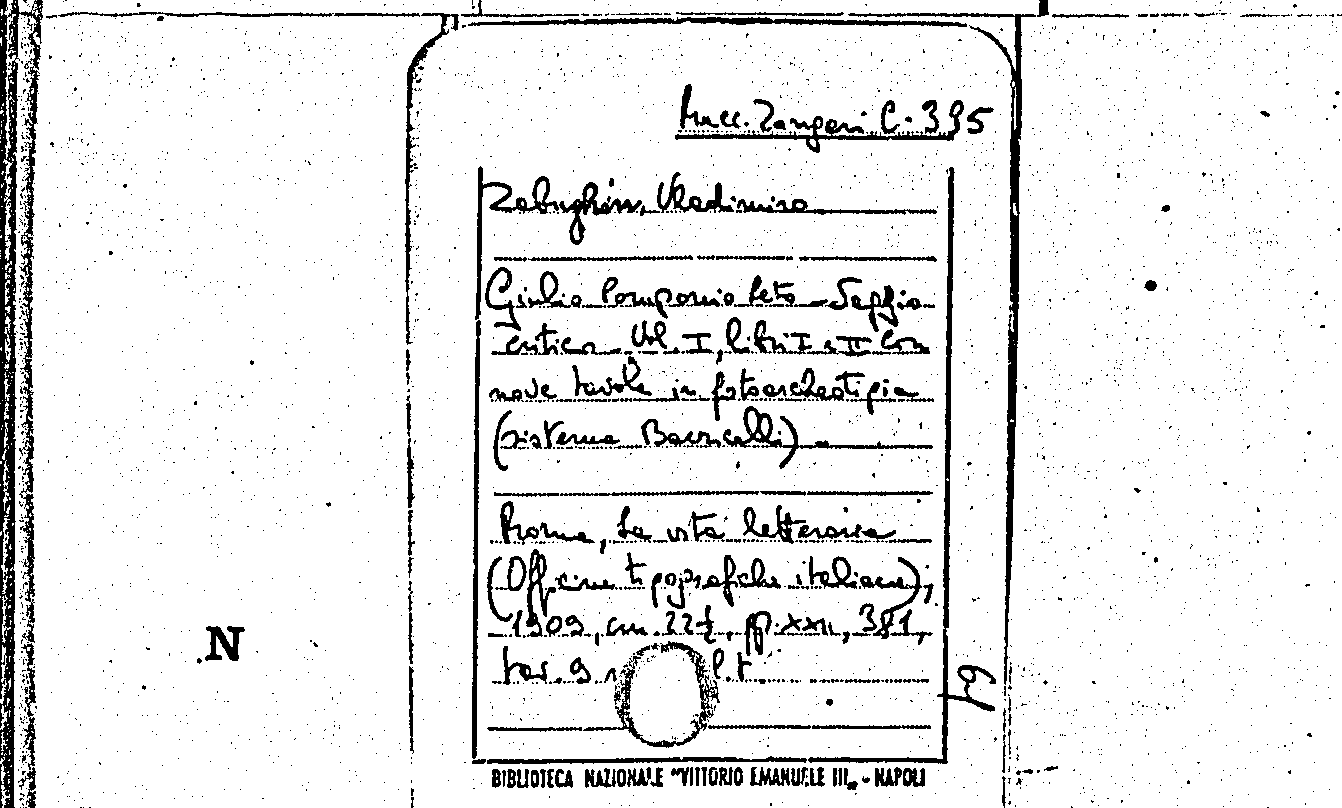 Racc. Zangari C. 395
Zabughin, Vladimiro
Giulio Pomponio Leto - Saggio
critico - Vol. I, libri I e II con
nove tavole in fotoarcheotipia
(sistema Bacricelli) -
Roma, La vita letteraria
(Officine tipografiche italiane),
1909, cm. 22½, pp. XXII, 381,
tav. 9 f.t.
N
BIBLIOTECA NAZIONALE "VITTORIO EMANUELE III„ - NAPOLI